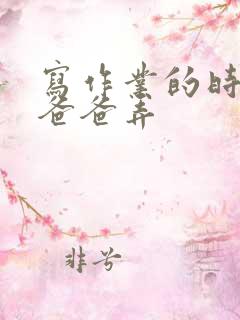 寫作業的時
爸爸弄
非兮